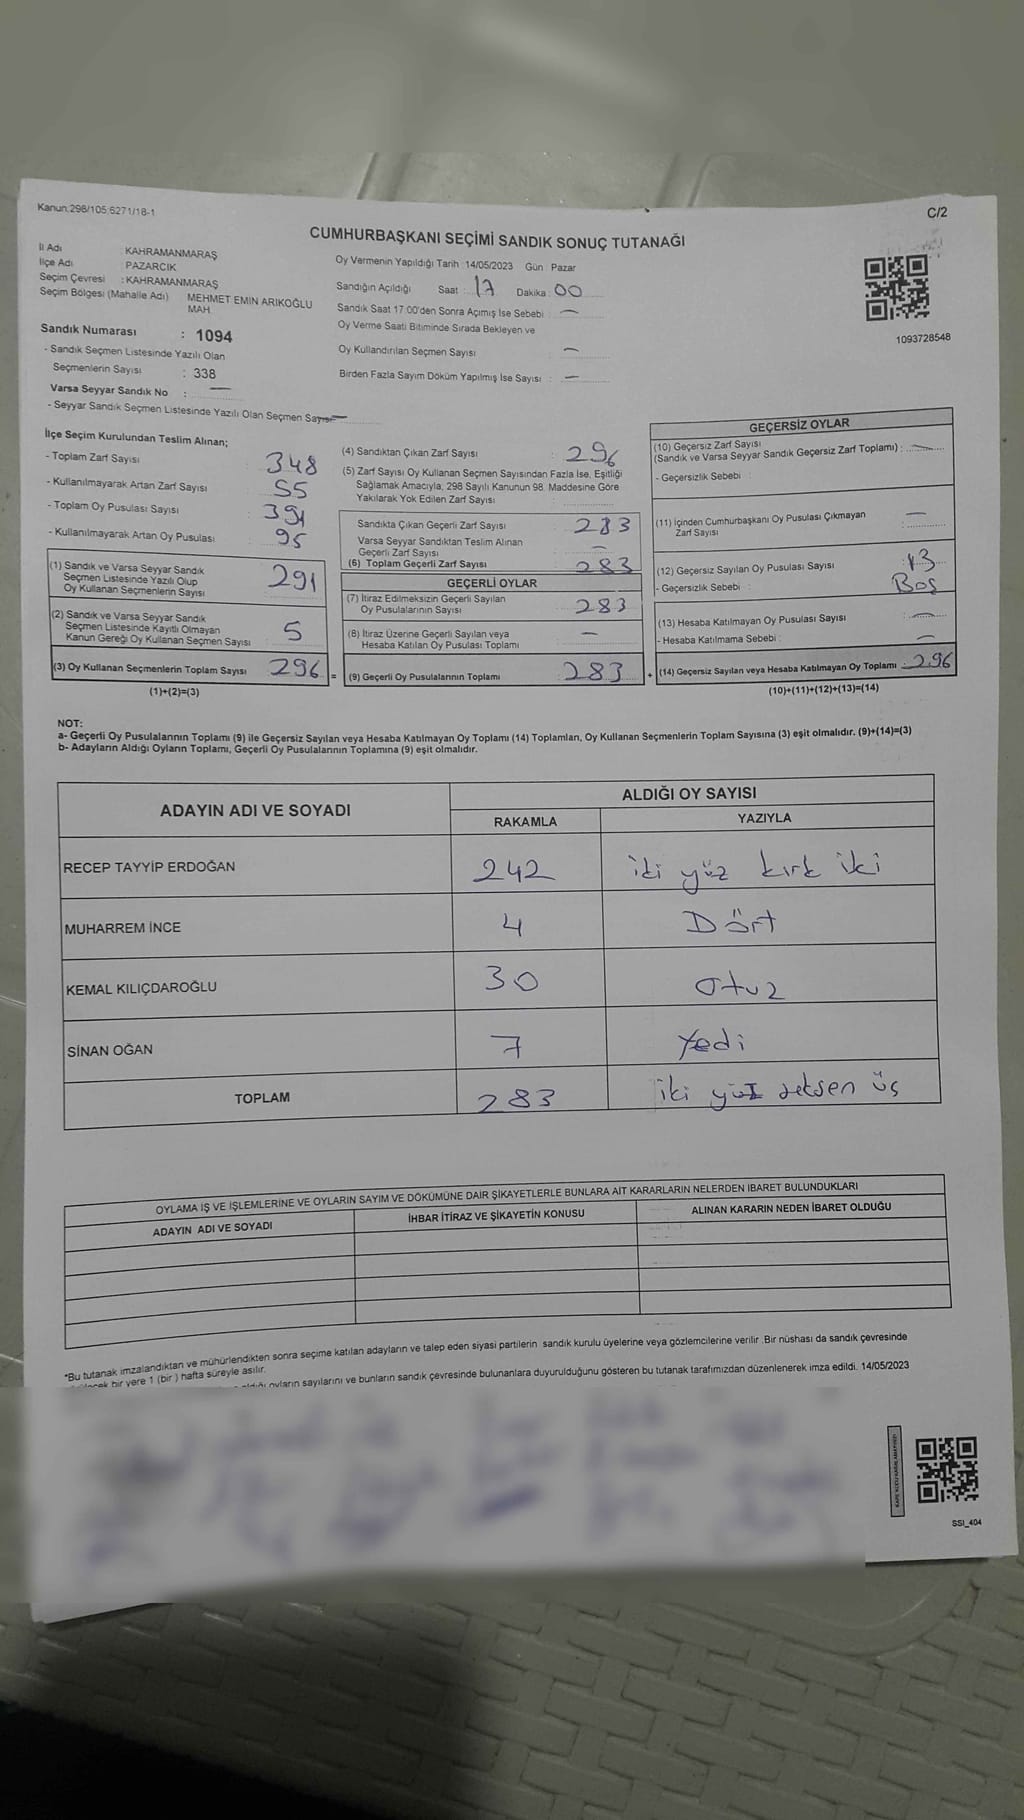 Kanun:298/105;6271/18-1
C/2
CUMHURBAŞKANI SEÇİMİ SANDIK SONUÇ TUTANAĞI
İl Adı : KAHRAMANMARAŞ
İlçe Adı : PAZARCIK
Seçim Çevresi : KAHRAMANMARAŞ
Seçim Bölgesi (Mahalle Adı) MEHMET EMIN ARIKOĞLU
MAH.
Sandık Numarası : 1094
- Sandık Seçmen Listesinde Yazılı Olan
Seçmenlerin Sayısı : 338
Varsa Seyyar Sandık No : —
- Seyyar Sandık Seçmen Listesinde Yazılı Olan Seçmen Sayısı —
Oy Vermenin Yapıldığı Tarih :14/05/2023 Gün Pazar
Sandığın Açıldığı Saat : 17 Dakika : 00
Sandık Saat 17:00'den Sonra Açımış İse Sebebi : —
Oy Verme Saati Bitiminde Sırada Bekleyen ve
Oy Kullandırılan Seçmen Sayısı : —
Birden Fazla Sayım Döküm Yapılmış İse Sayısı : —
1093728548
İlçe Seçim Kurulundan Teslim Alınan;
- Toplam Zarf Sayısı : 348
- Kullanılmayarak Artan Zarf Sayısı : 55
- Toplam Oy Pusulası Sayısı : 391
- Kullanılmayarak Artan Oy Pusulası : 95
(1) Sandık ve Varsa Seyyar Sandık
Seçmen Listesinde Yazılı Olup
Oy Kullanan Seçmenlerin Sayısı 291
(2) Sandık ve Varsa Seyyar Sandık
Seçmen Listesinde Kayıtlı Olmayan
Kanun Gereği Oy Kullanan Seçmen Sayısı 5
(3) Oy Kullanan Seçmenlerin Toplam Sayısı 296
(1)+(2)=(3)
=
(4) Sandıktan Çıkan Zarf Sayısı : 296
(5) Zarf Sayısı Oy Kullanan Seçmen Sayısından Fazla İse, Eşitliği
Sağlamak Amacıyla, 298 Sayılı Kanunun 98. Maddesine Göre
Yakılarak Yok Edilen Zarf Sayısı :
Sandıkta Çıkan Geçerli Zarf Sayısı 283
Varsa Seyyar Sandıktan Teslim Alınan
Geçerli Zarf Sayısı —
(6) Toplam Geçerli Zarf Sayısı 283
GEÇERLİ OYLAR
(7) İtiraz Edilmeksizin Geçerli Sayılan
Oy Pusulalarının Sayısı 283
(8) İtiraz Üzerine Geçerli Sayılan veya
Hesaba Katılan Oy Pusulası Toplamı —
(9) Geçerli Oy Pusulalarının Toplamı 283
+
GEÇERSİZ OYLAR
(10) Geçersiz Zarf Sayısı
(Sandık ve Varsa Seyyar Sandık Geçersiz Zarf Toplamı) : —
- Geçersizlik Sebebi :
(11) İçinden Cumhurbaşkanı Oy Pusulası Çıkmayan
Zarf Sayısı : —
(12) Geçersiz Sayılan Oy Pusulası Sayısı : 13
- Geçersizlik Sebebi : Boş
(13) Hesaba Katılmayan Oy Pusulası Sayısı : —
- Hesaba Katılmama Sebebi : —
(14) Geçersiz Sayılan veya Hesaba Katılmayan Oy Toplamı : 296
(10)+(11)+(12)+(13)=(14)
NOT:
a- Geçerli Oy Pusulalarının Toplamı (9) ile Geçersiz Sayılan veya Hesaba Katılmayan Oy Toplamı (14) Toplamları, Oy Kullanan Seçmenlerin Toplam Sayısına (3) eşit olmalıdır. (9)+(14)=(3)
b- Adayların Aldığı Oyların Toplamı, Geçerli Oy Pusulalarının Toplamına (9) eşit olmalıdır.
ADAYIN ADI VE SOYADI
ALDIĞI OY SAYISI
RAKAMLA YAZIYLA
RECEP TAYYİP ERDOĞAN 242 iki yüz kırk iki
MUHARREM İNCE 4 Dört
KEMAL KILIÇDAROĞLU 30 otuz
SİNAN OĞAN 7 Yedi
TOPLAM 283 iki yüz seksen üç
OYLAMA İŞ VE İŞLEMLERİNE VE OYLARIN SAYIM VE DÖKÜMÜNE DAİR ŞİKAYETLERLE BUNLARA AİT KARARLARIN NELERDEN İBARET BULUNDUKLARI
ADAYIN ADI VE SOYADI İHBAR İTİRAZ VE ŞİKAYETİN KONUSU ALINAN KARARIN NEDEN İBARET OLDUĞU
*Bu tutanak imzalandıktan ve mühürlendikten sonra seçime katılan adayların ve talep eden siyasi partilerin sandık kurulu üyelerine veya gözlemcilerine verilir .Bir nüshası da sandık çevresinde
bir yere 1 (bir ) hafta süreyle asılır.
oyların sayılarını ve bunların sandık çevresinde bulunanlara duyurulduğunu gösteren bu tutanak tarafımızdan düzenlenerek imza edildi. 14/05/2023
SSI_404